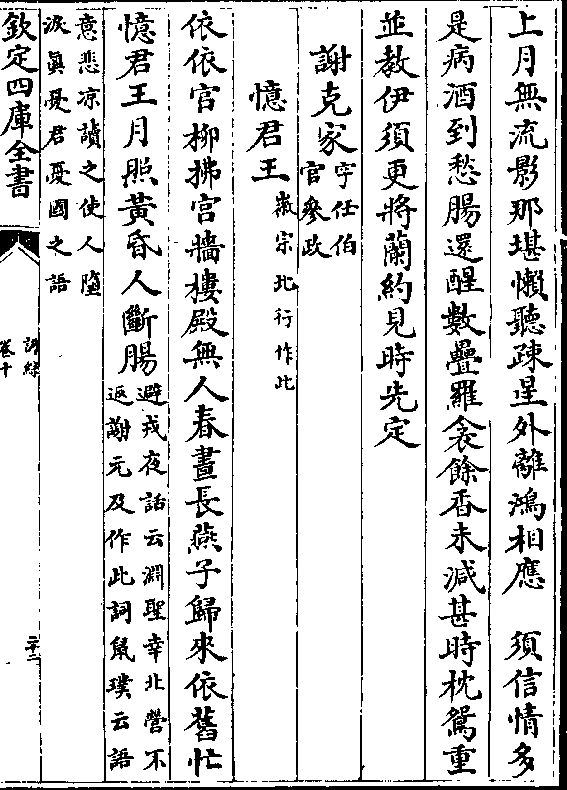 上月無流影那堪懶聽疎星外離鴻相應　須信情多
是病酒到愁腸還醒數疊羅衾餘香未減甚時枕鴛重
並教伊須更將蘭約見時先定
謝克家
字任伯
官參政
憶君王
徽宗北行作此
依依宫柳拂宫牆樓殿無人春晝長燕子歸來依舊忙
憶君王月照黃昏人斷腸
避戎夜話云淵聖幸北營不
返謝元及作此詞鼠璞云語
意悲凉讀之使人墮
淚眞憂君憂國之語
欽定四庫全書
詞綜
卷十